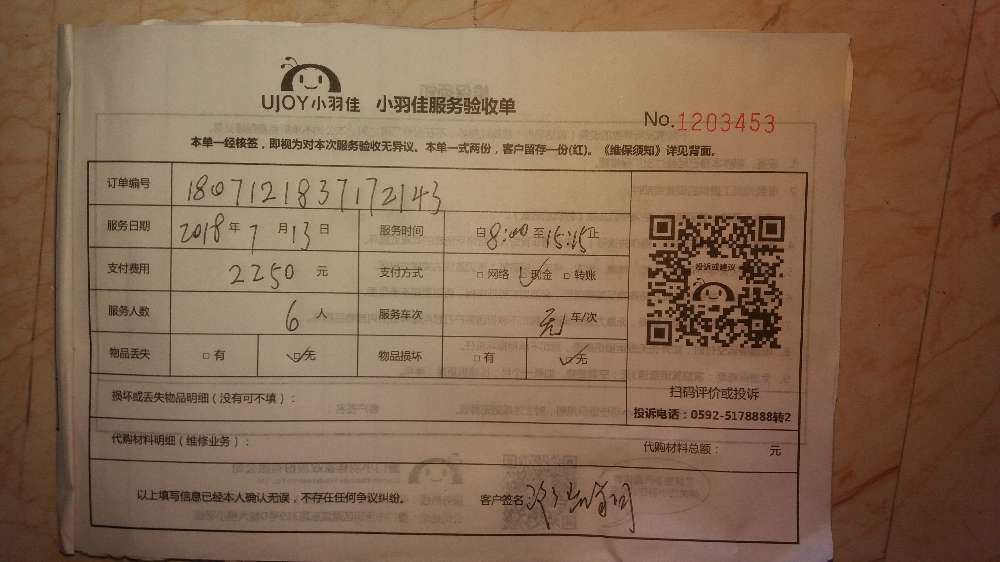 UJOY小羽佳 小羽佳服务验收单
No.1203453
本单一经核签，即视为对本次服务验收无异议。本单一式两份，客户留存一份(红)。《维保须知》详见背面。
订单编号 1807121837172143
服务日期 2018年7月13日 服务时间 自8:00至15:15止
支付费用 2250元 支付方式 □网络 ☑现金 □转账
服务人数 6人 服务车次 车/次
物品丢失 □有 ☑无 物品损坏 □有 ☑无
投诉或建议
扫码评价或投诉
投诉电话：0592-5178888转2
损坏或丢失物品明细（没有可不填）：
代购材料明细（维修业务）： 代购材料总额： 元
以上填写信息已经本人确认无误，不存在任何争议纠纷。 客户签名